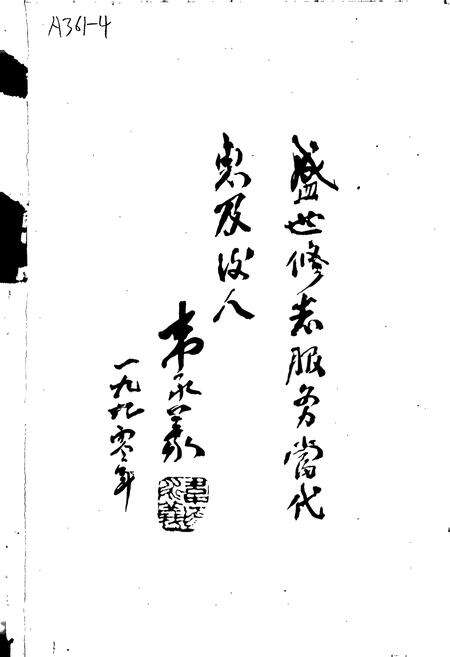 A361-4
盛世修志服务當代
惠及後人
韦永义
一九九零年